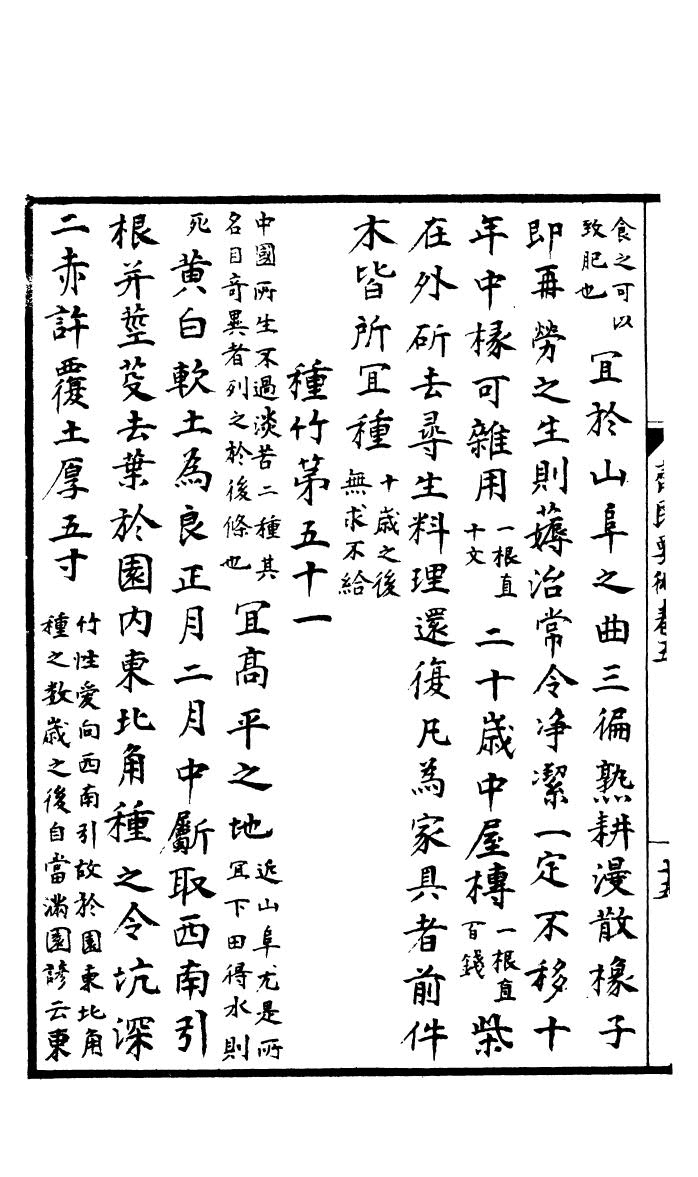 食之可以致肥也宜於山阜之曲三徧熟耕漫散橡子
即再勞之生則薅治常令净潔一定不移十
年中椽可雜用一根直十文二十歲中屋榑一根直百錢柴
在外斫去尋生料理還復凡為家具者前件
木皆所宜種十歲之後無求不給
種竹第五十一
中國所生不過淡苦二種其名目奇異者列之於後條也宜髙平之地近山阜尤是所宜下田得水則
死黄白軟土為良正月二月中斸取西南引
根并莖芟去葉於園内東北角種之令坑深
二赤許覆土厚五寸竹性愛向西南引故於園東北角種之数歲之後自當滿園諺云東
齊民要術卷五
十五